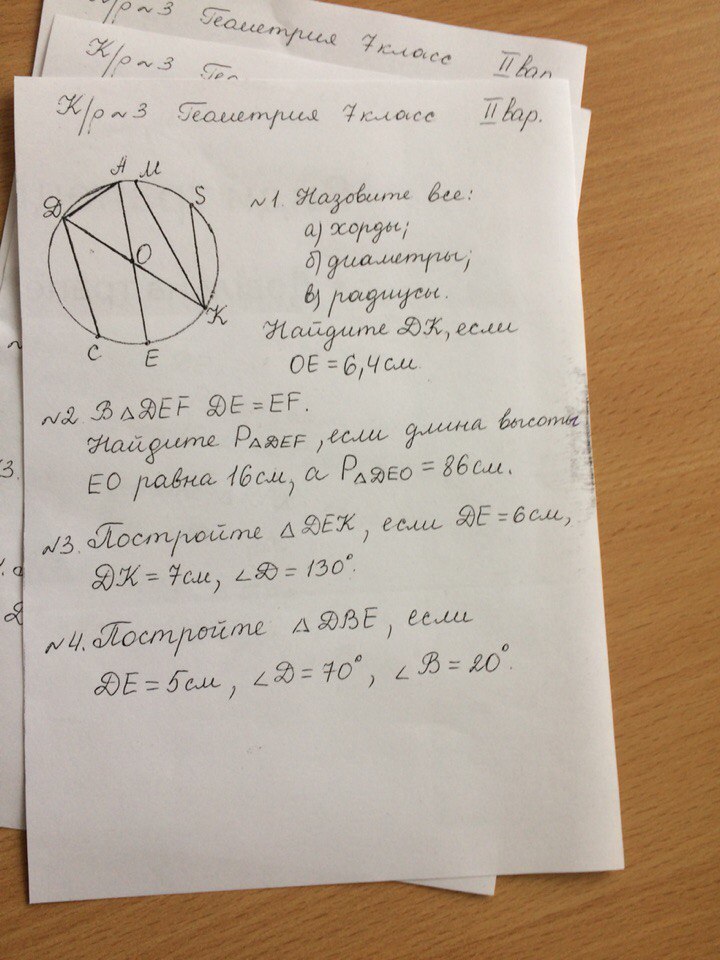 К/р №3 Геометрия 7 класс II вар.
К/р №3
К/р №3 Геометрия 7 класс II вар.
А М
Д S
О
К
С Е
№1. Назовите все:
а) хорды;
б) диаметры;
в) радиусы.
Найдите ДК, если
ОЕ = 6,4 см.
№2 В △DEF DE = EF.
Найдите P△DEF, если длина высоты
ЕО равна 16 см, а P△DEO = 86 см.
№3. Постройте △DEK, если DE = 6 см,
DK = 7 см, ∠D = 130°.
№4. Постройте △DBE, если
DE = 5 см, ∠D = 70°, ∠B = 20°.